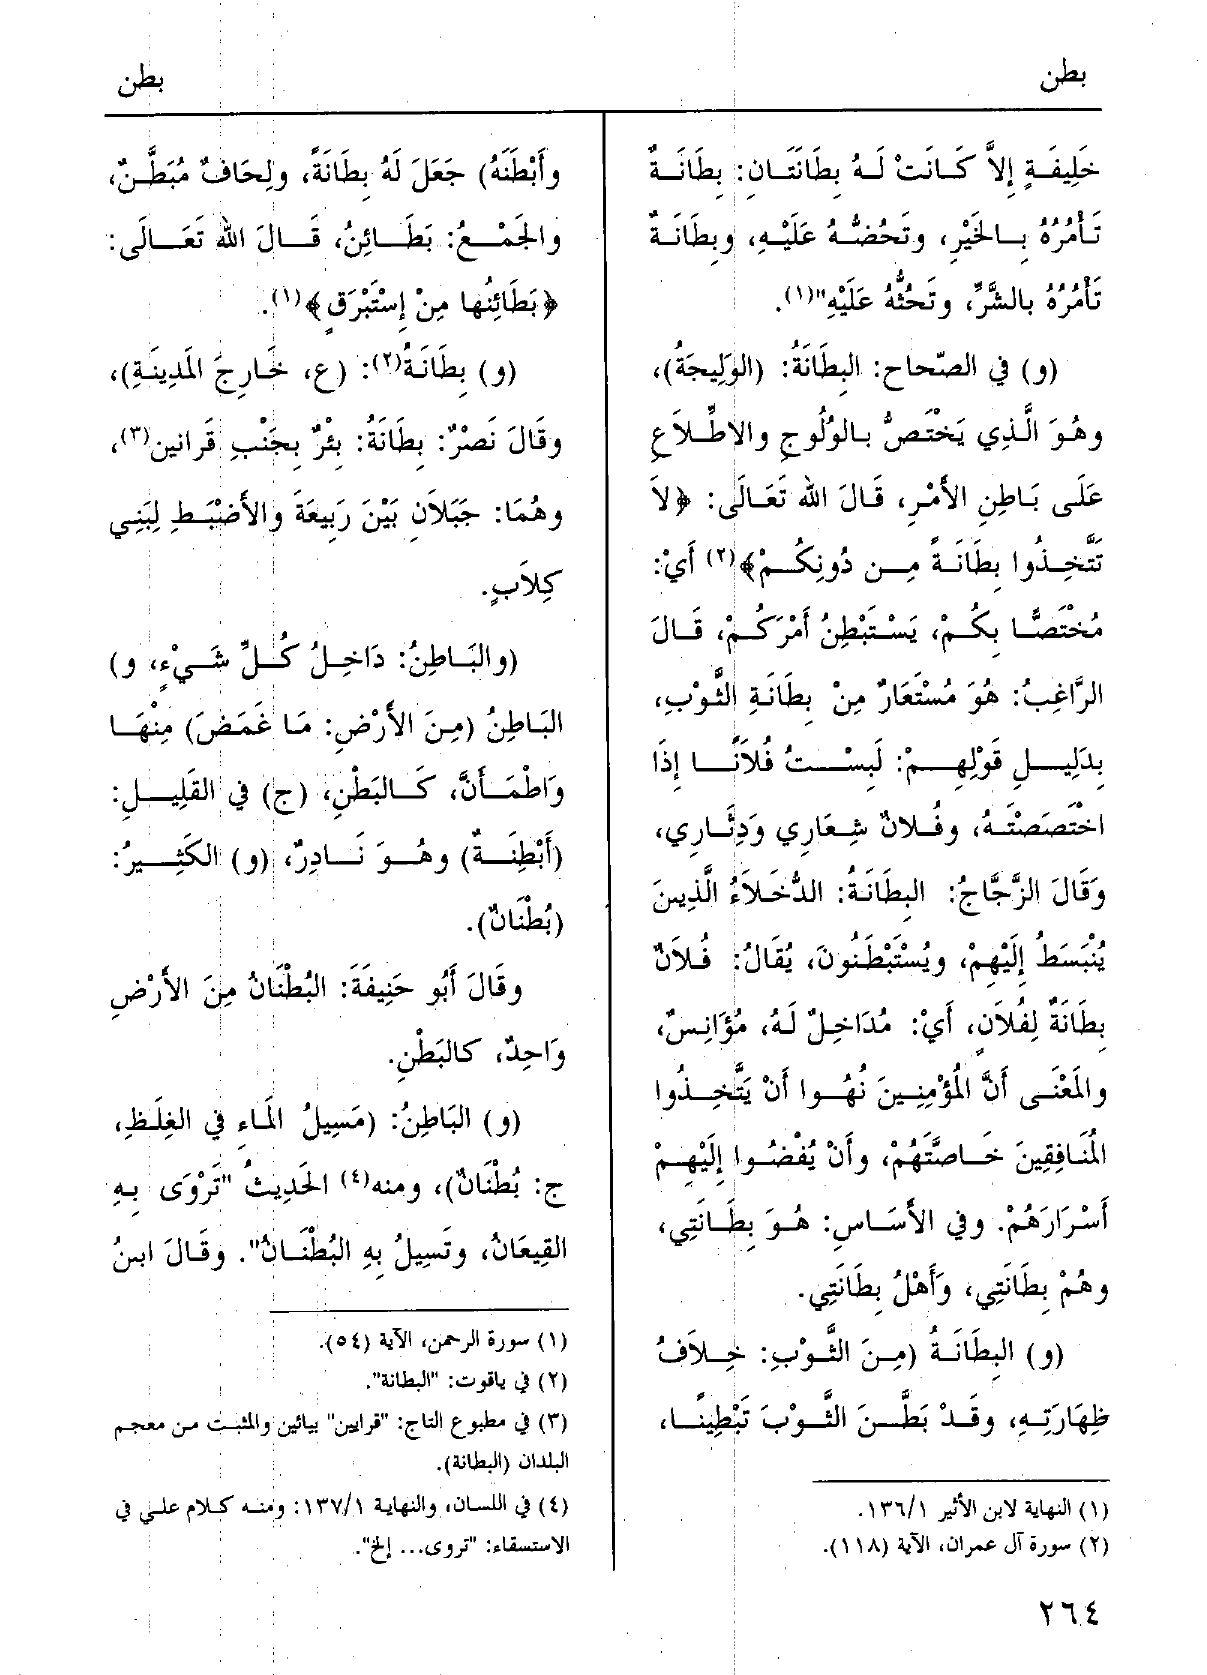 بطن
بطن
خَلِيفَةٍ إِلاَّ كَانَتْ لَهُ بِطَانَتَانِ: بِطَانَةٌ
تَأْمُرُهُ بِالخَيْرِ، وتَحُضُّهُ عَلَيْهِ، وبِطَانَةٌ
تَأْمُرُهُ بالشَّرِّ، وتَحُثُّهُ عَلَيْهِ"(١).
(و) في الصّحاح: البِطَانَةُ: (الوَلِيجَةُ)،
وهُوَ الَّذِي يَخْتَصُّ بالوُلُوجِ والاطِّلاَعِ
عَلَى بَاطِنِ الأَمْرِ، قَالَ الله تَعَالَى: ﴿لاَ
تَتَّخِذُوا بِطَانَةً مِن دُونِكُمْ﴾(٢) أَيْ:
مُخْتَصًّا بِكُمْ، يَسْتَبْطِنُ أَمْرَكُمْ، قَالَ
الرَّاغِبُ: هُوَ مُسْتَعَارٌ مِنْ بِطَانَةِ الثَّوْبِ،
بِدَلِيلِ قَوْلِهِمْ: لَبِسْتُ فُلاَنًا إِذَا
اخْتَصَصْتَهُ، وفُلانٌ شِعَارِي وَدِثَارِي،
وَقَالَ الزَّجَّاجُ: البِطَانَةُ: الدُّخَلاَءُ الَّذِينَ
يُنْبَسَطُ إِلَيْهِمْ، ويُسْتَبْطَنُونَ، يُقَالُ: فُلاَنٌ
بِطَانَةٌ لِفُلاَنٍ، أَيْ: مُدَاخِلٌ لَهُ، مُؤَانِسٌ،
والمَعْنَى أَنَّ المُؤْمِنِينَ نُهُوا أَنْ يَتَّخِذُوا
المُنَافِقِينَ خَاصَّتَهُمْ، وأَنْ يُفْضُوا إِلَيْهِمْ
أَسْرَارَهُمْ. وفي الأَسَاسِ: هُوَ بِطَانَتِي،
وهُمْ بِطَانَتِي، وَأَهْلُ بِطَانَتِي.
(و) البِطَانَةُ (مِنَ الثَّوْبِ: خِلاَفُ
ظِهَارَتِهِ، وقَدْ بَطَّنَ الثَّوْبَ تَبْطِينًا،
(١) النهاية لابن الأثير ١٣٦/١.
(٢) سورة آل عمران، الآية (١١٨).
وأَبْطَنَهُ) جَعَلَ لَهُ بِطَانَةً، ولِحَافٌ مُبَطَّنٌ،
والجَمْعُ: بَطَائِنُ، قَالَ الله تَعَالَى:
﴿بَطَائِنُها مِنْ إِسْتَبْرَقٍ﴾(١).
(و) بِطَانَةُ(٢): (ع، خَارِجَ المَدِينَةِ)،
وقَالَ نَصْرٌ: بِطَانَةُ: بِئْرٌ بِجَنْبِ قَرانين(٣)،
وهُمَا: جَبَلاَنِ بَيْنَ رَبِيعَةَ والأَضْبَطِ لِبَنِي
كِلاَبٍ.
(والبَاطِنُ: دَاخِلُ كُلِّ شَيْءٍ، و)
البَاطِنُ (مِنَ الأَرْضِ: مَا غَمَضَ) مِنْهَا
وَاطْمَأَنَّ، كَالبَطْنِ، (ج) في القَلِيلِ:
(أَبْطِنَةٌ) وهُوَ نَادِرٌ، (و) الكَثِيرُ:
(بُطْنَانٌ).
وقَالَ أَبُو حَنِيفَةَ: البُطْنَانُ مِنَ الأَرْضِ
وَاحِدٌ، كالبَطْنِ.
(و) البَاطِنُ: (مَسِيلُ المَاءِ في الغِلَظِ،
ج: بُطْنَانٌ)، ومنه(٤) الحَدِيثُ "تَرْوَى بِهِ
القِيعَانُ، وتَسِيلُ بِهِ البُطْنَانُ". وقَالَ ابنُ
(١) سورة الرحمن، الآية (٥٤).
(٢) في ياقوت: "البطانة".
(٣) في مطبوع التاج: "قرايين" بيائين والمثبت من معجم
البلدان (البطانة).
(٤) في اللسان، والنهاية ١٣٧/١: ومنه كلام علي في
الاستسقاء: "تروى... إلخ".
٢٦٤